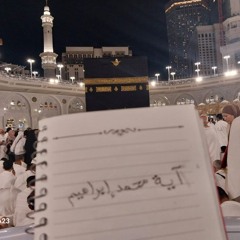 آية محمد إبراهيم
623